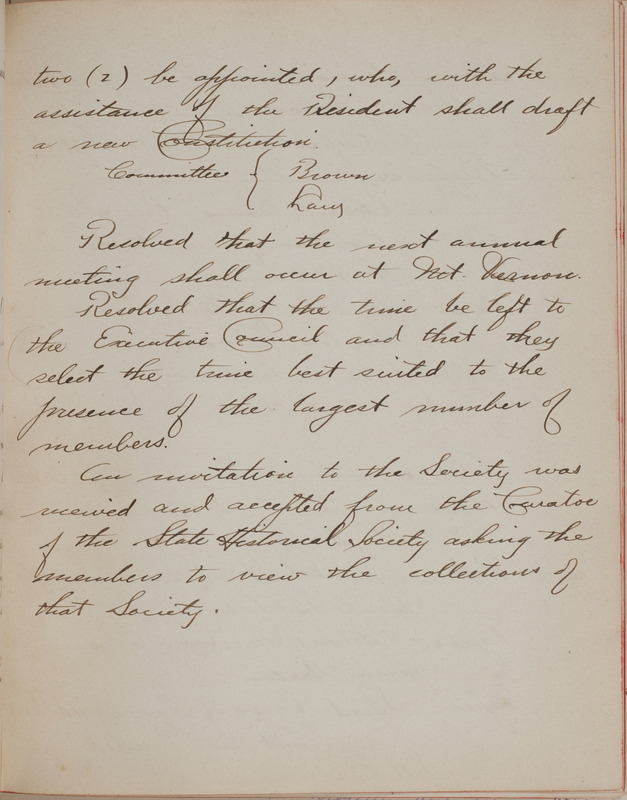 two (2) be appointed, who, with the
assistance of the President shall draft
a new Constitution.
Committee { Brown
Lany
Resolved that the next annual
meeting shall occur at Mt. Vernon.
Resolved that the time be left to
the Executive Council and that they
select the time best suited to the
presence of the largest number of
members.
An invitation to the Society was
received and accepted from the Curator
of the State Historical Society asking the
members to view the collections of
that Society.